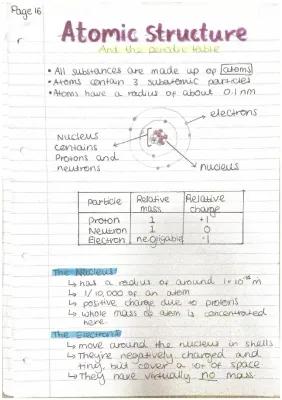 Page 16
Atomic Structure
And the periodic table
• All substances are made up of atoms
• Atoms contain 3 subatomic particles
• Atoms have a radius of about 0.1 nm
electrons
Nucleus
contains
Protons and
neutrons
nucleus
Particle Relative mass Relative charge
Proton 1 +1
Neutron 1 0
Electron negligible -1
The Nucleus:
↳ has a radius of around 1×10 m
↳ 1/10,000 of an atom
↳ positive charge due to protons
↳ whole mass of atom is concentrated
here.
The Electrons:
↳ move around the nucleus in shells
↳ They're negatively charged and
tiny, but cover a lot of space
↳ They have virtually no mass